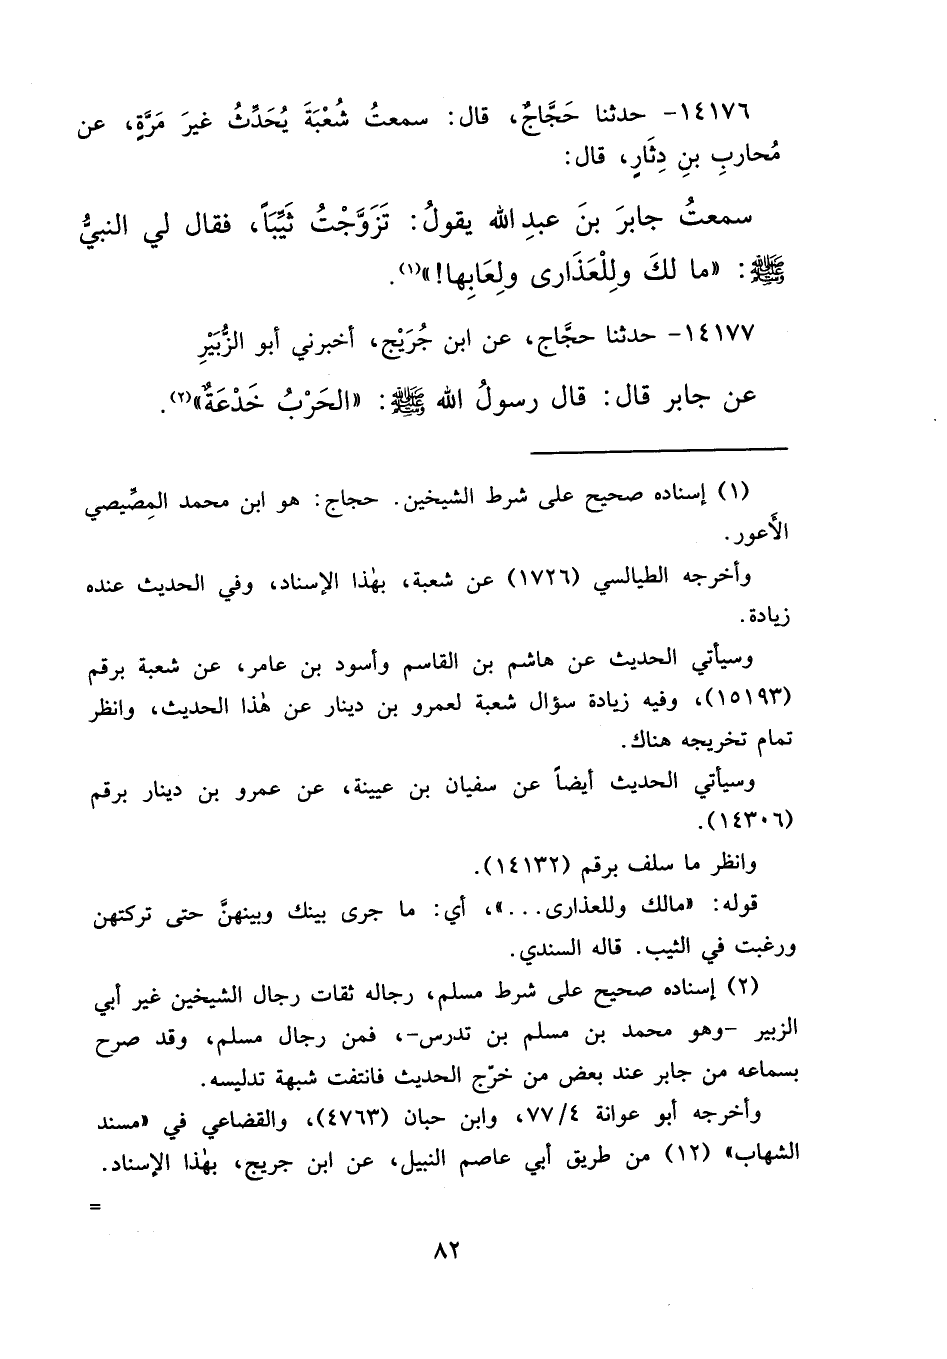 ١٤١٧٦- حدثنا حَجَّاجٌ، قال: سمعتُ شُعْبَةَ يُحَدِّثُ غيرَ مَرَّةٍ، عن
مُحاربِ بنِ دِثَارٍ، قال:
سمعتُ جابرَ بنَ عبدِ الله يقولُ: تَزَوَّجْتُ ثَيِّبَاً، فقال لي النبيُّ
ﷺ: «ما لكَ وللْعَذَارى ولِعَابِها!»(١).
١٤١٧٧- حدثنا حجَّاج، عن ابن جُرَيْج، أخبرني أبو الزُّبَيْرِ
عن جابر قال: قال رسولُ الله ﷺ: «الحَرْبُ خَدْعَةٌ»(٢).
(١) إسناده صحيح على شرط الشيخين. حجاج: هو ابن محمد المِصِّيصي
الأَعور.
وأخرجه الطيالسي (١٧٢٦) عن شعبة، بهٰذا الإسناد، وفي الحديث عنده
زيادة.
وسيأتي الحديث عن هاشم بن القاسم وأسود بن عامر، عن شعبة برقم
(١٥١٩٣)، وفيه زيادة سؤال شعبة لعمرو بن دينار عن هٰذا الحديث، وانظر
تمام تخريجه هناك.
وسيأتي الحديث أيضاً عن سفيان بن عيينة، عن عمرو بن دينار برقم
(١٤٣٠٦).
وانظر ما سلف برقم (١٤١٣٢).
قوله: «مالك وللعذارى...»، أي: ما جرى بينك وبينهنَّ حتى تركتهن
ورغبت في الثيب. قاله السندي.
(٢) إسناده صحيح على شرط مسلم، رجاله ثقات رجال الشيخين غير أبي
الزبير -وهو محمد بن مسلم بن تدرس-، فمن رجال مسلم، وقد صرح
بسماعه من جابر عند بعض من خرّج الحديث فانتفت شبهة تدليسه.
وأخرجه أبو عوانة ٧٧/٤، وابن حبان (٤٧٦٣)، والقضاعي في «مسند
الشهاب» (١٢) من طريق أبي عاصم النبيل، عن ابن جريج، بهٰذا الإسناد.
=
٨٢